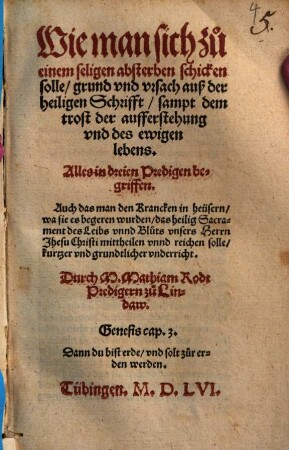 45.
Wie man sich zů
einem seligen absterben schicken
solle/ grund vnd vrsach auß der
heiligen Schrifft/ sampt dem
trost der aufferstehung
vnd des ewigen
lebens.
Alles in dreien Predigen be-
griffen.
Auch das man den Krancken in heüsern/
wa sie es begeren wurden/ das heilig Sacra-
ment des Leibs vnnd Blůts vnsers Herrn
Jhesu Christi mittheilen vnnd reichen solle/
kurtzer vnd grundtlicher vnderricht.
Durch M. Mathiam Rodt
Predigern zů Lin-
daw.
Genesis cap. 3.
Dann du bist erde/ vnd solt zůr er-
den werden.
Tübingen. M. D. LVI.